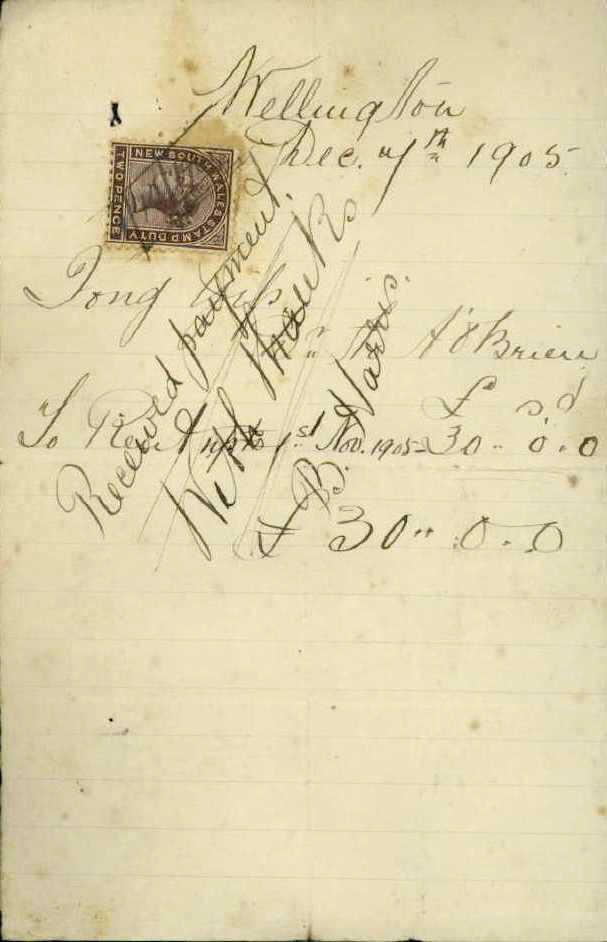 Wellington
Dec. 7th 1905.
NEW SOUTH WALES STAMP DUTY
TWO PENCE
Tong
A O'Brien
£ s d
To Rent up to 1st Nov. 1905 30 .. 0 . 0
£ 30 .. 0 . 0
Received payment
With thanks